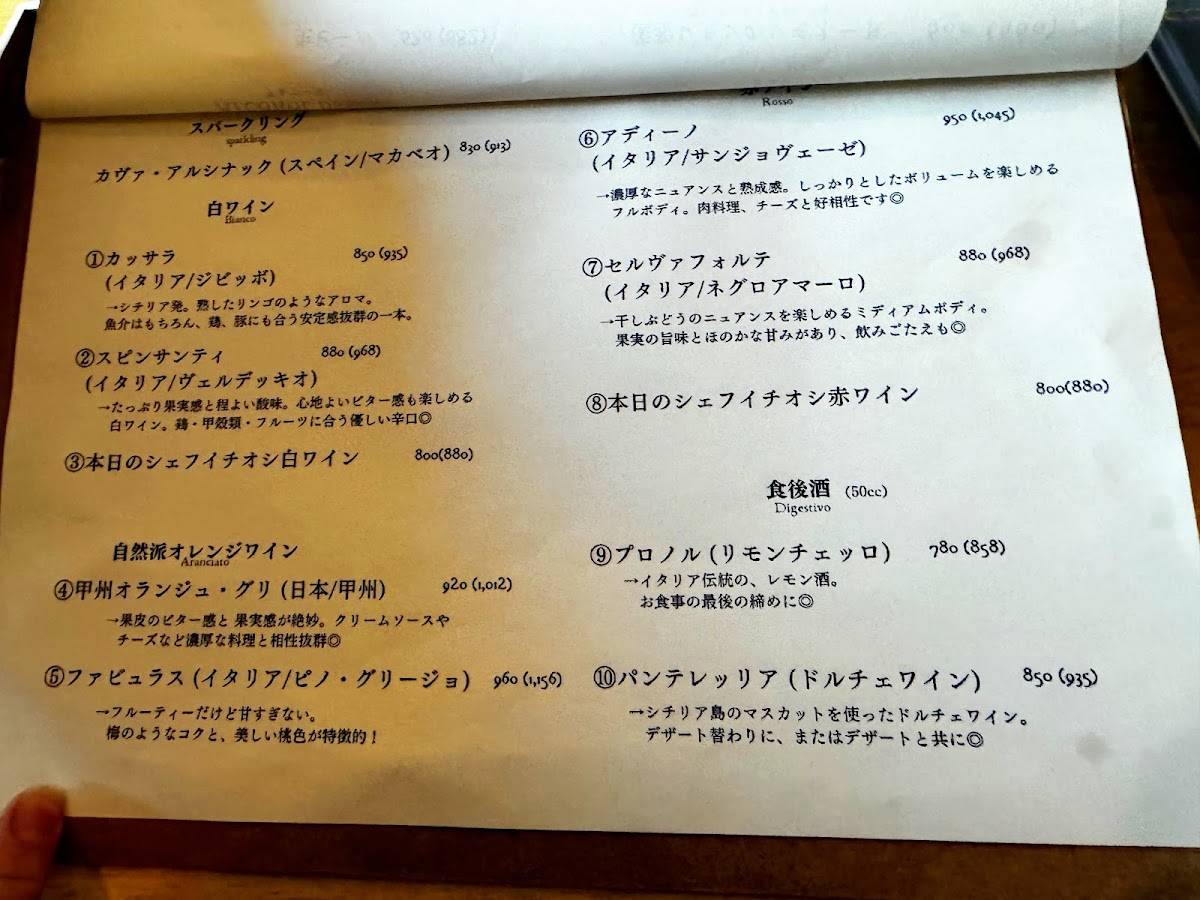 スパークリング
sparkling
カヴァ・アルシナック (スペイン/マカベオ) 830 (913)
白ワイン
Bianco
①カッサラ 850 (935)
(イタリア/ジビッボ)
→シチリア発。熟したリンゴのようなアロマ。
魚介はもちろん、鶏、豚にも合う安定感抜群の一本。
②スピンサンティ 880 (968)
(イタリア/ヴェルデッキオ)
→たっぷり果実感と程よい酸味。心地よいビター感も楽しめる
白ワイン。鶏・甲殻類・フルーツに合う優しい辛口◎
③本日のシェフイチオシ白ワイン 800(880)
自然派オレンジワイン
Aranciato
④甲州オランジュ・グリ (日本/甲州) 920 (1,012)
→果皮のビター感と 果実感が絶妙。クリームソースや
チーズなど濃厚な料理と相性抜群◎
⑤ファビュラス (イタリア/ピノ・グリージョ) 960 (1,156)
→フルーティーだけど甘すぎない。
梅のようなコクと、美しい桃色が特徴的！
赤ワイン
Rosso
⑥アディーノ 950 (1,045)
(イタリア/サンジョヴェーゼ)
→濃厚なニュアンスと熟成感。しっかりとしたボリュームを楽しめる
フルボディ。肉料理、チーズと好相性です◎
⑦セルヴァフォルテ 880 (968)
(イタリア/ネグロアマーロ)
→干しぶどうのニュアンスを楽しめるミディアムボディ。
果実の旨味とほのかな甘みがあり、飲みごたえも◎
⑧本日のシェフイチオシ赤ワイン 800(880)
食後酒 (50cc)
Digestivo
⑨プロノル (リモンチェッロ) 780 (858)
→イタリア伝統の、レモン酒。
お食事の最後の締めに◎
⑩パンテレッリア (ドルチェワイン) 850 (935)
→シチリア島のマスカットを使ったドルチェワイン。
デザート替わりに、またはデザートと共に◎